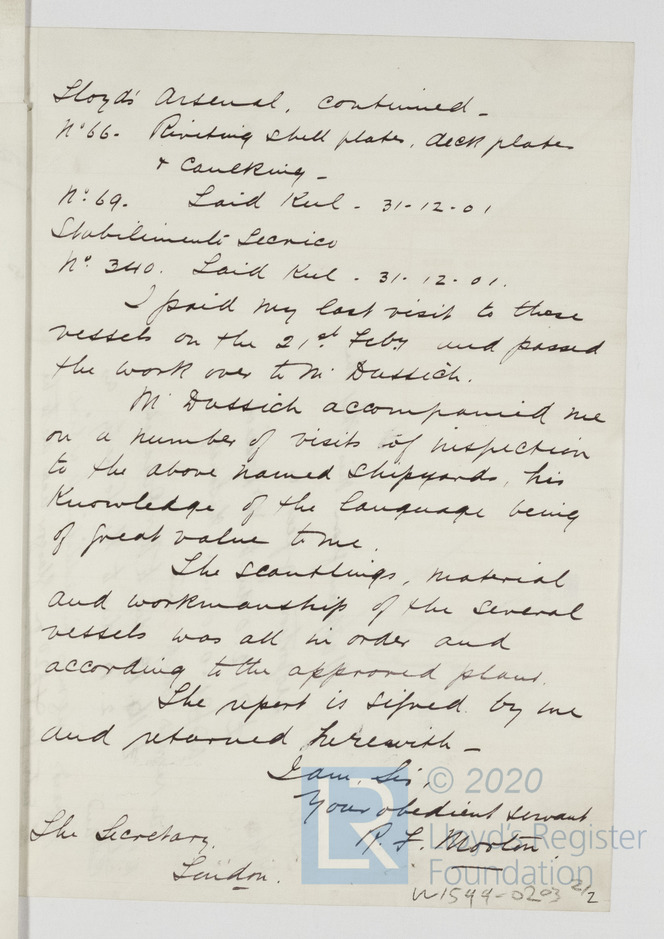 Lloyd's Arsenal, continued -
No 66 - Riveting shell plates, deck plates
& caulking -
No. 69. Laid Keel - 31-12-01
Stabilimento Tecnico
No. 340. Laid Keel - 31-12-01.
I paid my last visit to these
vessels on the 21st Feby and passed
the work over to Mr Dassich.
Mr Dassich accompanied me
on a number of visits of inspection
to the above named shipyards, his
knowledge of the language being
of great value to me.
The scantlings, material
and workmanship of the several
vessels was all in order and
according to the approved plans.
The report is signed by me
and returned herewith -
I am, Sir,
Your obedient servant
P. F. Morton
The Secretary.
London.
W1544-0203 2/2
© 2020
Lloyd's Register
Foundation
LR